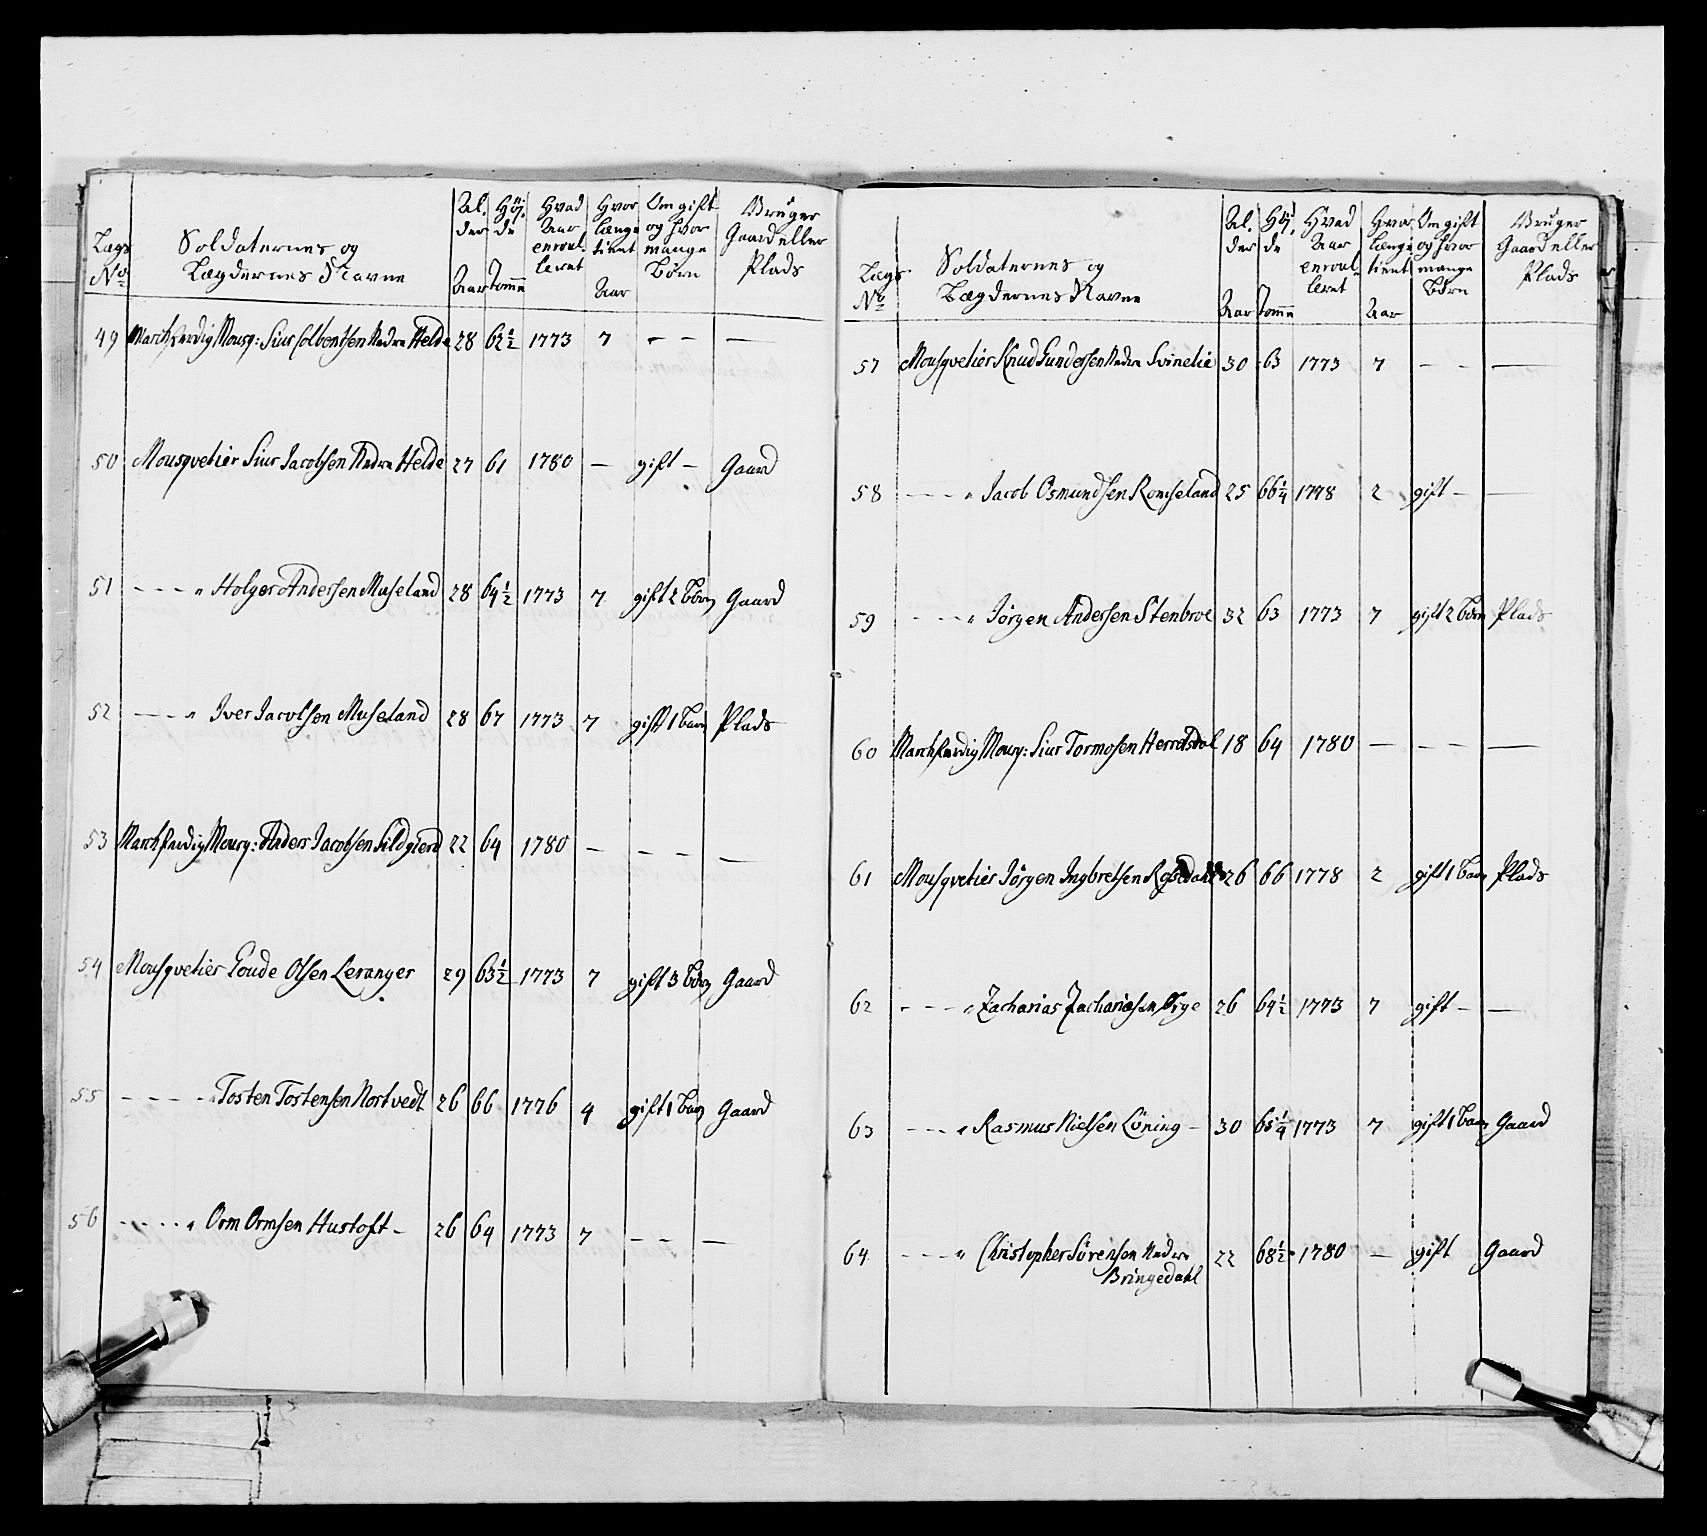 Lægs No
Soldaternes og Lægdernes Navne
Alder Aar
Høyde Tomme
Hvad Aar enroulleret
Hvor længe tient Aar
Om gift og hvor mange Børn
Bruger Gaard eller Plads
49 Marchfærdig Mousq: Siur Colbentsen Nedre Helde 28 62½ 1773 7 – – —
50 Mousqvetier Siur Jacobsen Nedre Helde 27 61 1780 — gift – Gaard
51 – – – „ Holger Andersen Museland 28 64½ 1773 7 gift 2 Børn Gaard
52 – – – „ Iver Jacobsen Museland 28 67 1773 7 gift 1 Barn Plads
53 Marchfærdig Mousq: Anders Jacobsen Sildgierd 22 64 1780 – – – —
54 Mousqvetier Goude Olsen Leranger 29 63½ 1773 7 gift 3 Børn Gaard
55 – – – – „ Tosten Tostensen Nortvedt 26 66 1776 4 gift 1 Barn Gaard
56 – – – – „ Orm Ormsen Hustoft – 26 64 1773 7 – – —
Lægs No
Soldaternes og Lægdernes Navne
Alder Aar
Høyde Tomme
Hvad Aar enroulleret
Hvor længe tient Aar
Om gift og hvor mange Børn
Bruger Gaard eller Plads
57 Mousqvetier Knud Gundersen Nedre Svinelie 30 63 1773 7 – – —
58 – – – „ Jacob Osmundsen Romseland 25 66¼ 1778 2 gift – —
59 – – – „ Jørgen Andersen Stenbroe 32 63 1773 7 gift 2 Børn Plads
60 Marchfærdig Mousq: Siur Tormosen Herredsdal 18 64 1780 — – – —
61 Mousqvetier Jørgen Ingbretsen 26 66 1778 2 gift 1 Barn Plads
62 – – – „ Zacharias Zachariasen 26 64½ 1773 7 gift – —
63 – – – „ Rasmus Nielsen Løning – 30 65¼ 1773 7 gift 1 Barn Gaard
64 – – – „ Christopher Sørensen Nedre 22 68½ 1780 — gift Gaard
Bringedahl